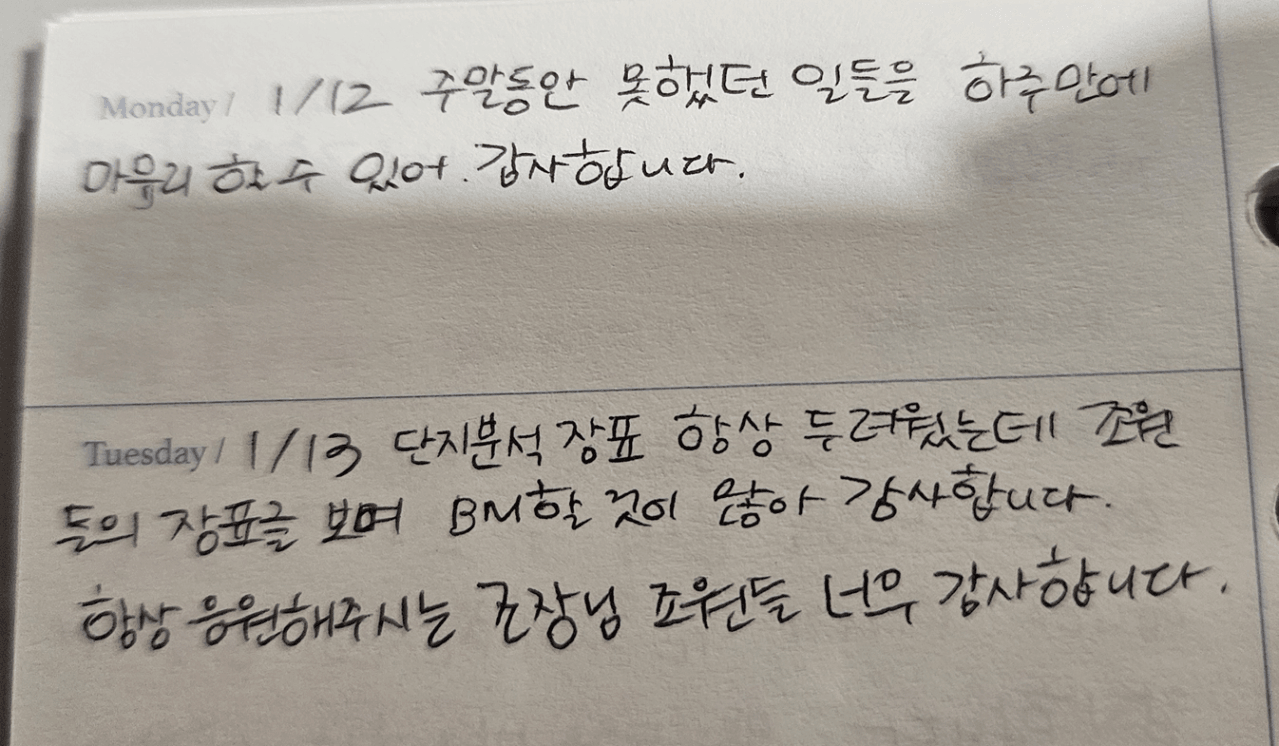 Monday / 1/12 주말동안 못했던 일들을 하루만에
마무리 할 수 있어. 감사합니다.
Tuesday / 1/13 단지분석 장표 항상 두려웠는데 조원
들의 장표를 보며 BM할 것이 많아 감사합니다.
항상 응원해주시는 조장님 조원들 너무 감사합니다.